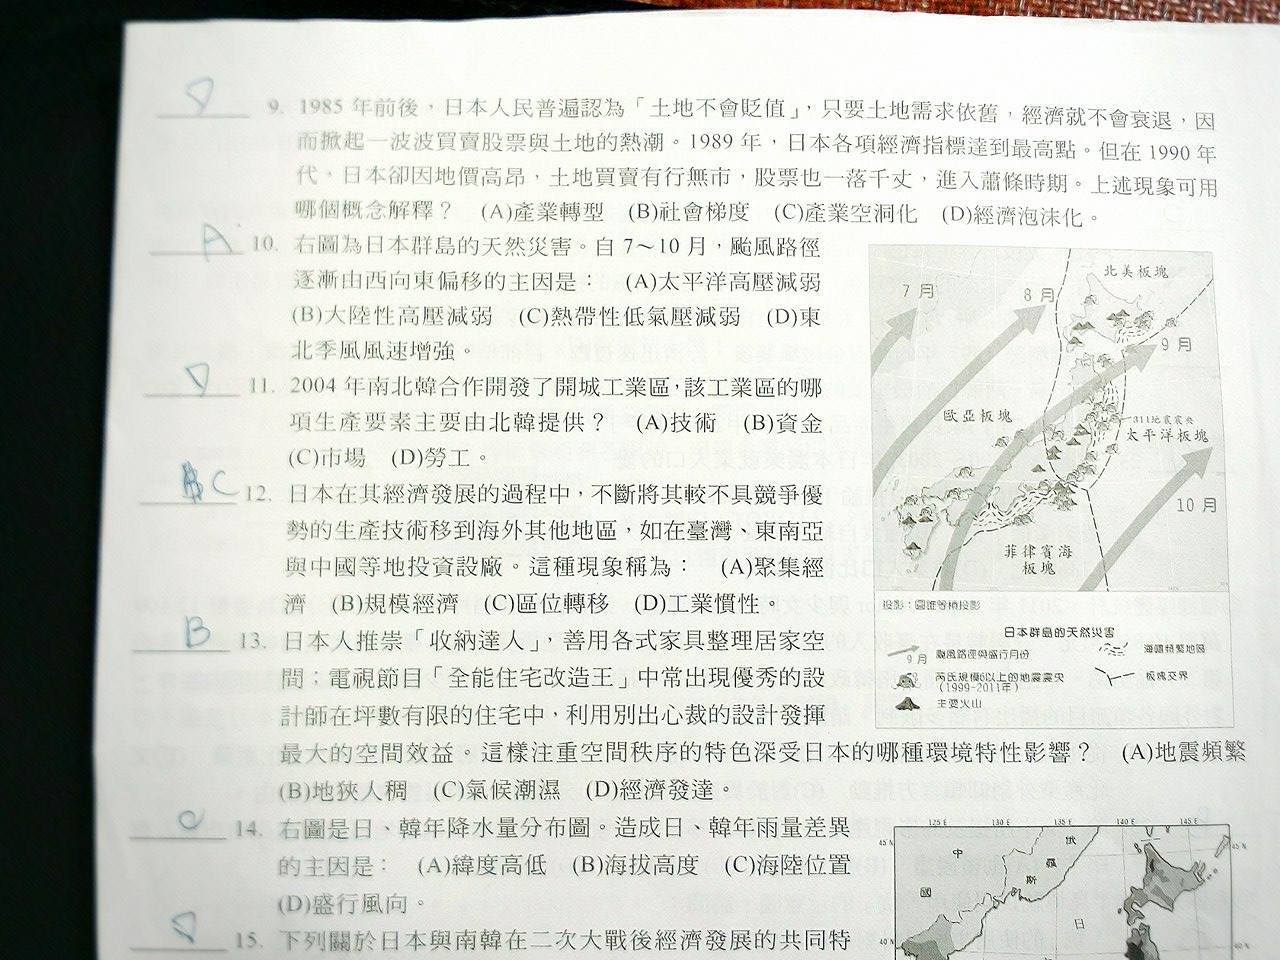 D 9. 1985 年前後，日本人民普遍認為「土地不會貶值」，只要土地需求依舊，經濟就不會衰退，因
而掀起一波波買賣股票與土地的熱潮。1989 年，日本各項經濟指標達到最高點。但在 1990 年
代，日本卻因地價高昂，土地買賣有行無市，股票也一落千丈，進入蕭條時期。上述現象可用
哪個概念解釋？ (A)產業轉型 (B)社會梯度 (C)產業空洞化 (D)經濟泡沫化。
A 10. 右圖為日本群島的天然災害。自 7～10 月，颱風路徑
逐漸由西向東偏移的主因是： (A)太平洋高壓減弱
(B)大陸性高壓減弱 (C)熱帶性低氣壓減弱 (D)東
北季風風速增強。
D 11. 2004 年南北韓合作開發了開城工業區，該工業區的哪
項生產要素主要由北韓提供？ (A)技術 (B)資金
(C)市場 (D)勞工。
C 12. 日本在其經濟發展的過程中，不斷將其較不具競爭優
勢的生產技術移到海外其他地區，如在臺灣、東南亞
與中國等地投資設廠。這種現象稱為： (A)聚集經
濟 (B)規模經濟 (C)區位轉移 (D)工業慣性。
B 13. 日本人推崇「收納達人」，善用各式家具整理居家空
間；電視節目「全能住宅改造王」中常出現優秀的設
計師在坪數有限的住宅中，利用別出心裁的設計發揮
最大的空間效益。這樣注重空間秩序的特色深受日本的哪種環境特性影響？ (A)地震頻繁
(B)地狹人稠 (C)氣候潮濕 (D)經濟發達。
C 14. 右圖是日、韓年降水量分布圖。造成日、韓年雨量差異
的主因是： (A)緯度高低 (B)海拔高度 (C)海陸位置
(D)盛行風向。
D 15. 下列關於日本與南韓在二次大戰後經濟發展的共同特
北美板塊
7 月
8 月
9 月
歐亞板塊
311地震震央
太平洋板塊
10 月
菲律賓海
板塊
投影：圓錐等積投影
日本群島的天然災害
9 月 颱風路徑與盛行月份
海嘯頻繁地區
芮氏規模6以上的地震震央
(1999-2011年)
板塊交界
主要火山
125 E 130 E 135 E 140 E 145 E
45 N
45 N
中
俄
羅
斯
國
日
40 N
40 N